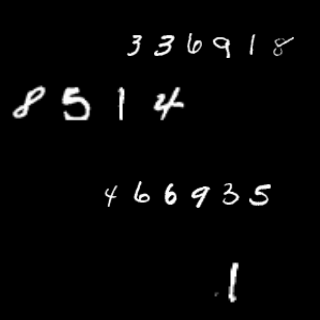 336918
8514
466935
1